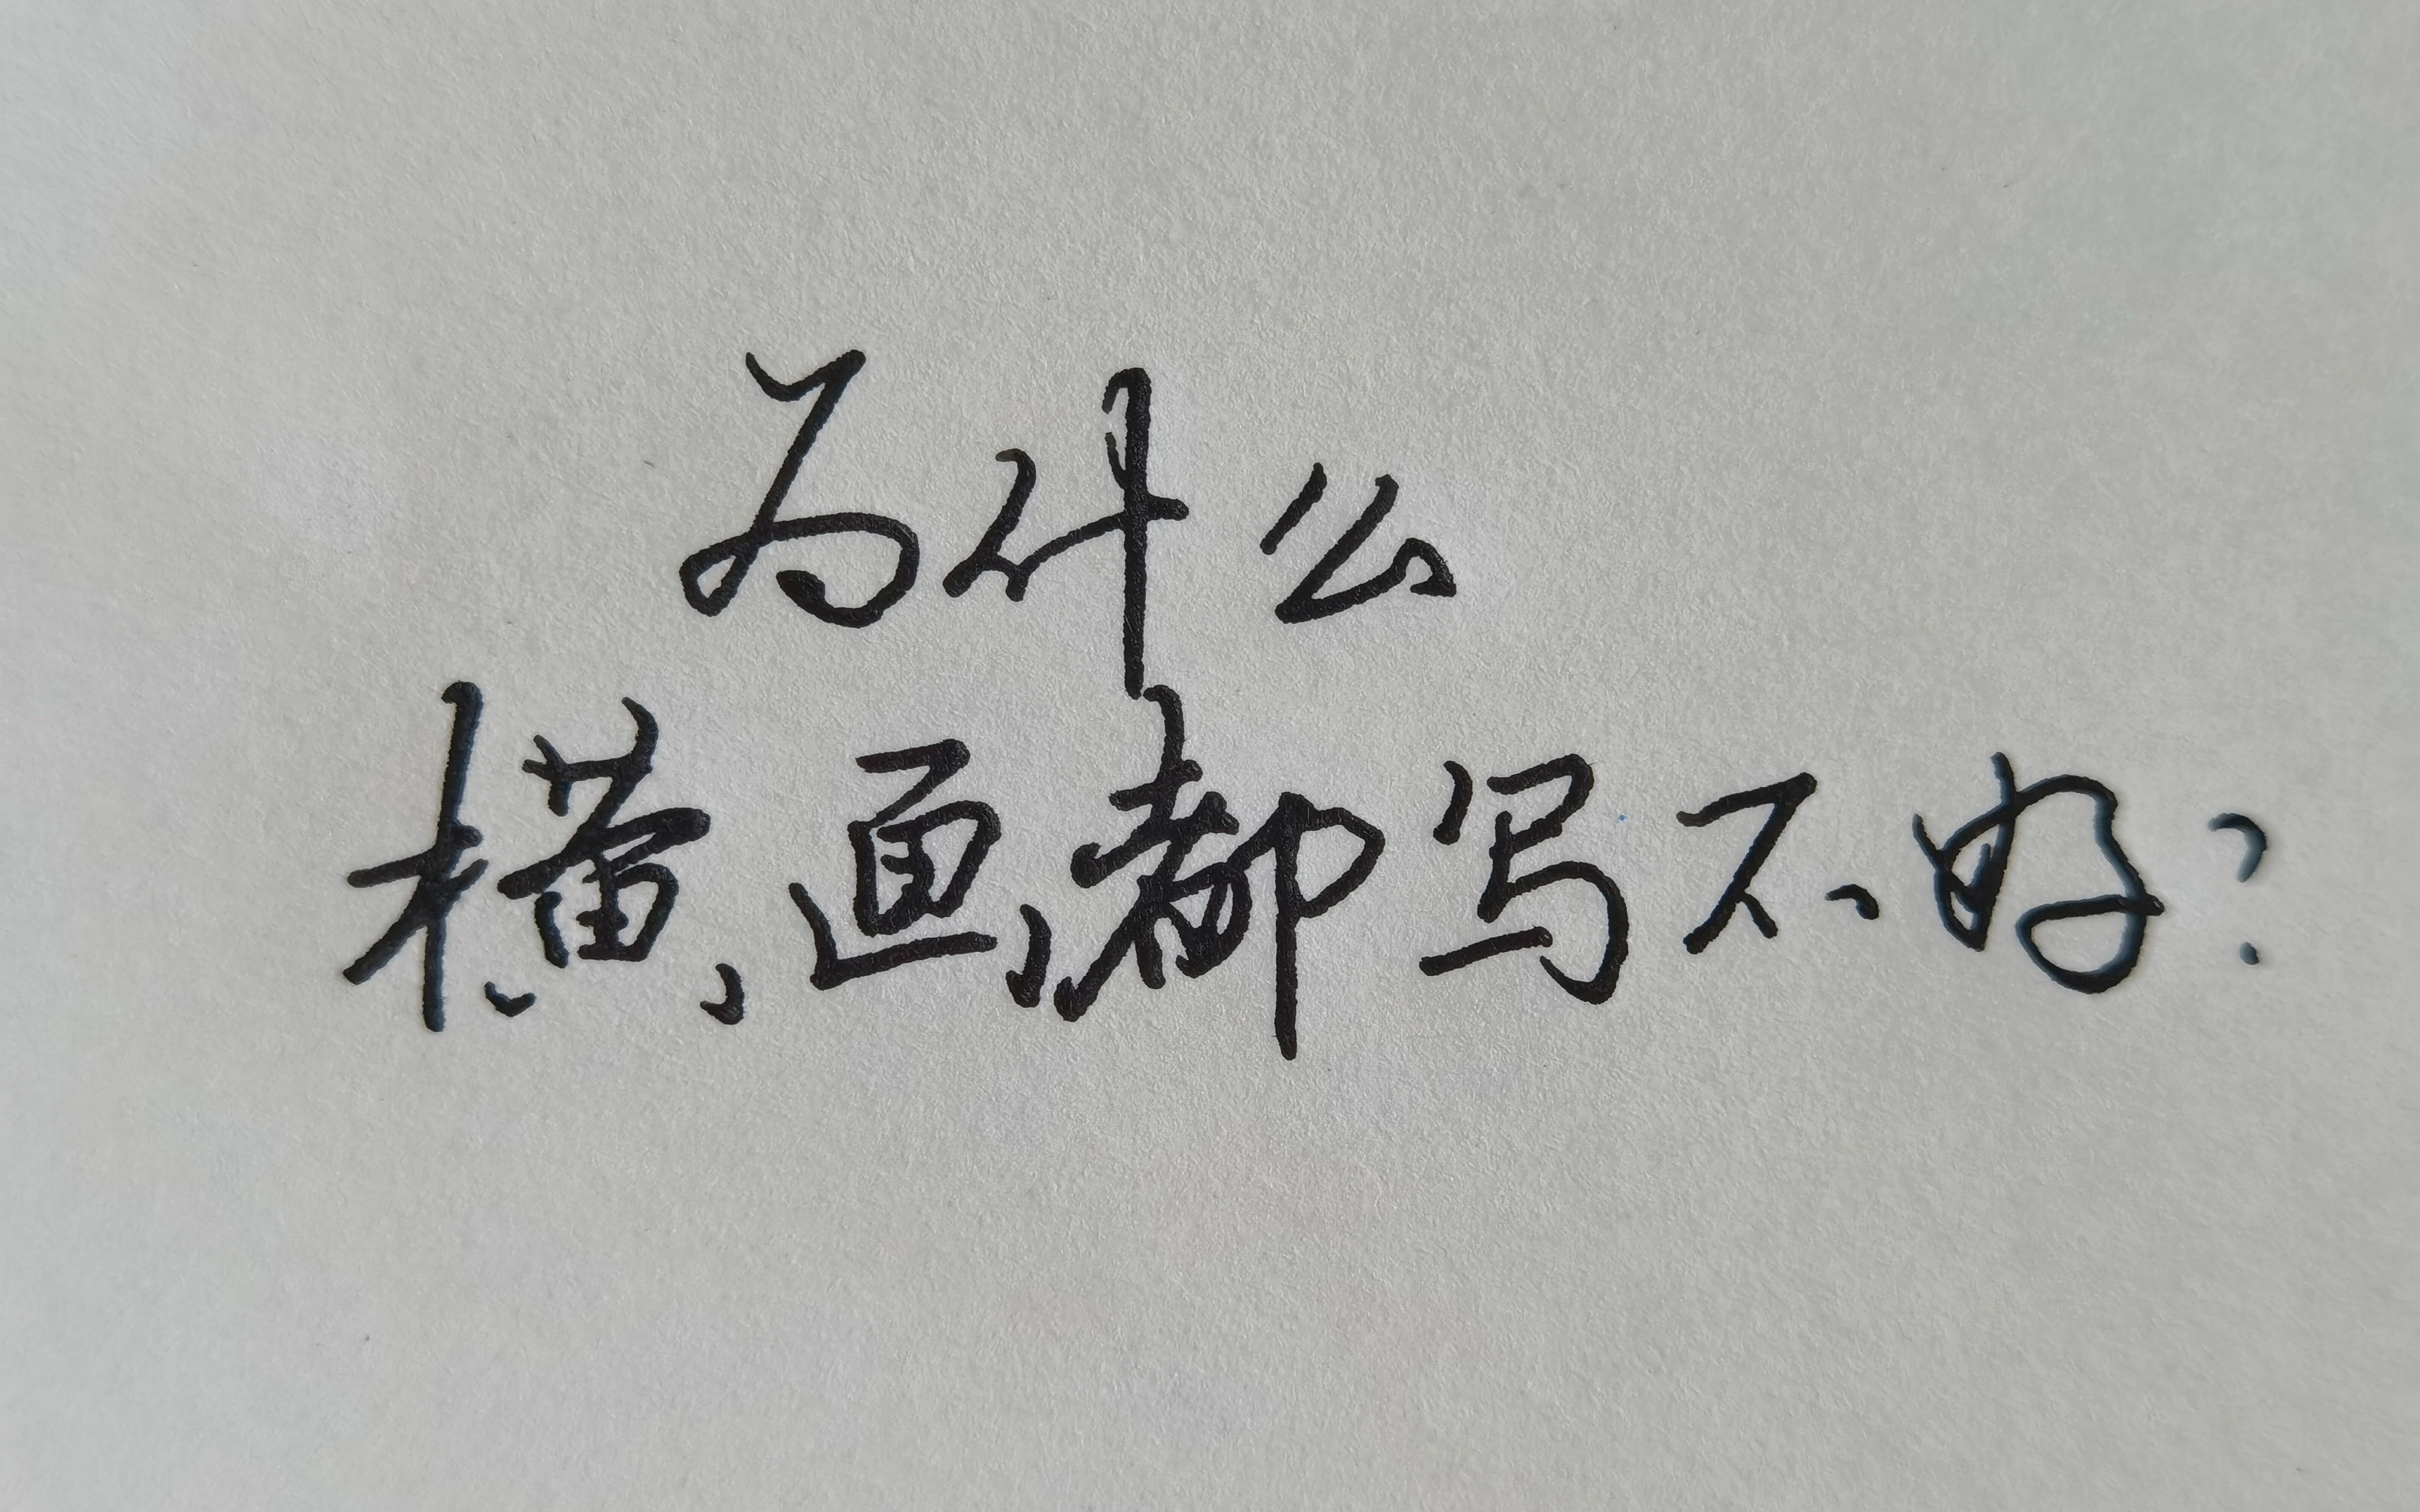 为什么
横画都写不好?